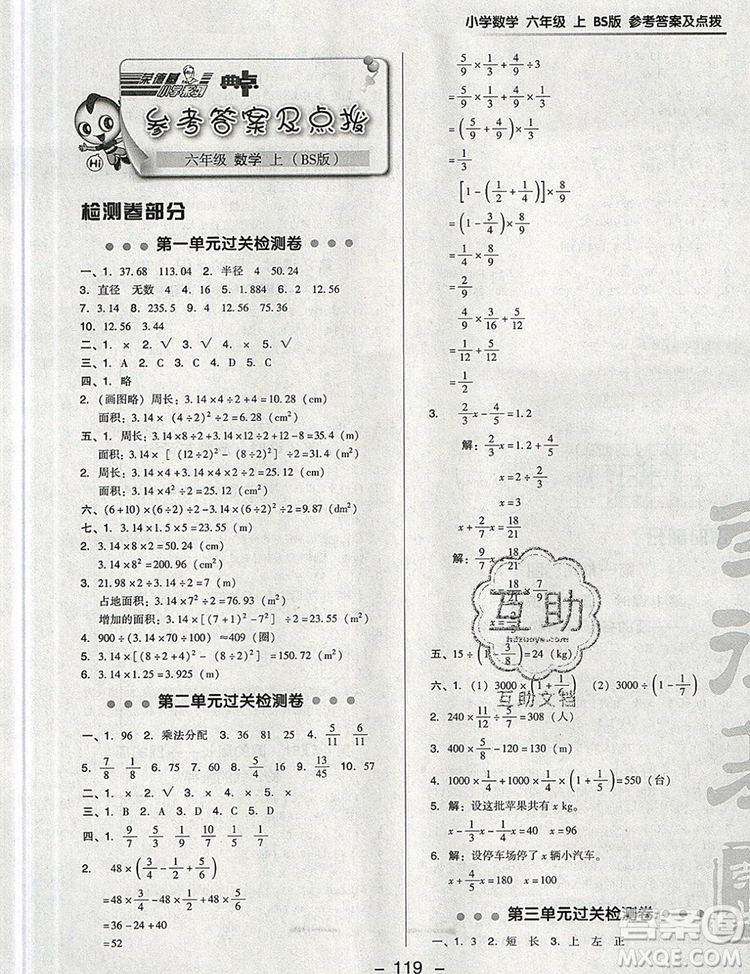 小学数学 六年级 上 BS版 参考答案及点拨
荣德基
小学系列
典点
参考答案及点拨
六年级 数学 上（BS版）
Hi
检测卷部分
第一单元过关检测卷
一、1. 37.68 113.04 2. 半径 4 50.24
3. 直径 无数 4. 4 16 5. 1.884 6. 2
7. 3.14 8. 235.5 9. 3.14 12.56 75.36
10. 12.56 3.44
二、1. × 2. √ 3. √ 4. × 5. ×
三、1. A 2. C 3. C 4. D 5. C
四、1. 略
2. (画图略) 周长: 3.14×4÷2+4=10.28 (cm)
面积: 3.14×(4÷2)²÷2=6.28 (cm²)
五、1. 周长: 3.14×8÷2+3.14×12÷2+12-8=35.4 (m)
面积: 3.14×[(12÷2)²-(8÷2)²]÷2=31.4 (m²)
2. 周长: 3.14×8÷2+3.14×4=25.12 (cm)
面积: 3.14×4²÷2=25.12 (cm²)
六、(6+10)×(6÷2)÷2-3.14×(6÷2)²÷2=9.87 (dm²)
七、1. 3.14×1.5×5=23.55 (m)
2. 3.14×8×2=50.24 (cm)
3.14×8²=200.96 (cm²)
3. 21.98×2÷3.14÷2=7 (m)
占地面积: 3.14×7²÷2=76.93 (m²)
增加的面积: 3.14×[(7+2)²-7²]÷2=50.24 (m²)
4. 900÷(3.14×70÷100)≈409 (圈)
5. 3.14×[(8÷2+4)²-(8÷2)²]=150.72 (m²)
6. 3.14×(5÷2)²×1.2=23.55 (t)
3.14×5×1.5=23.55 (m)
第二单元过关检测卷
一、1. 96 2. 乘法分配 3. 36 36 4. 5/11 6/11
5. 7/8 1/8 6. 75 7. 60 8. 20 9. 3/20 10. 11/15
二、1. × 2. √ 3. × 4. √ 5. ×
三、1. B 2. A 3. C 4. D 5. A
四、1. 1/9 9/7 5/3 9/10 4/7 3/5 1/4 9/5
2. 48×(3/4-1/2+1/3)
=48×3/4-48×1/2+48×1/3
=36-24+40
=52
5/9×1/3+4/9÷3
=5/9×1/3+4/9×1/3
=(5/9+4/9)×1/3
=1/3
[1-(1/2+1/4)]×8/9
=(1-3/4)×8/9
=1/4×8/9
=2/9
4/9×3/16×5/12
=1/12×5/12
=1/12
3. 2/3x-4/5=1.2
解: 2/3x=1.2+4/5
x=2÷2/3
x=3
x+2/7x=18/21
解: 9/7x=18/21
x=18/21×7/9
x=2/3
五、15÷(1-3/8)=24 (kg)
六、1. (1) 3000×(1+1/6) (2) 3000÷(1-1/7)
2. 240×11/12÷5/7=308 (人)
3. 400×5/8-120=130 (m)
4. 1000×1/4+1000×1/4×(1+1/5)=550 (台)
5. 解: 设这批苹果共有 x kg。
x-1/3x-1/4x=40 x=96
6. 解: 设停车场停了 x 辆小汽车。
x+4/5x=180 x=100
第三单元过关检测卷
一、1. 3 2. 短 长 3. 上 左 正
- 119 -
互助
hdzuoye.com
互助文档
答案圈
MXQE.COM